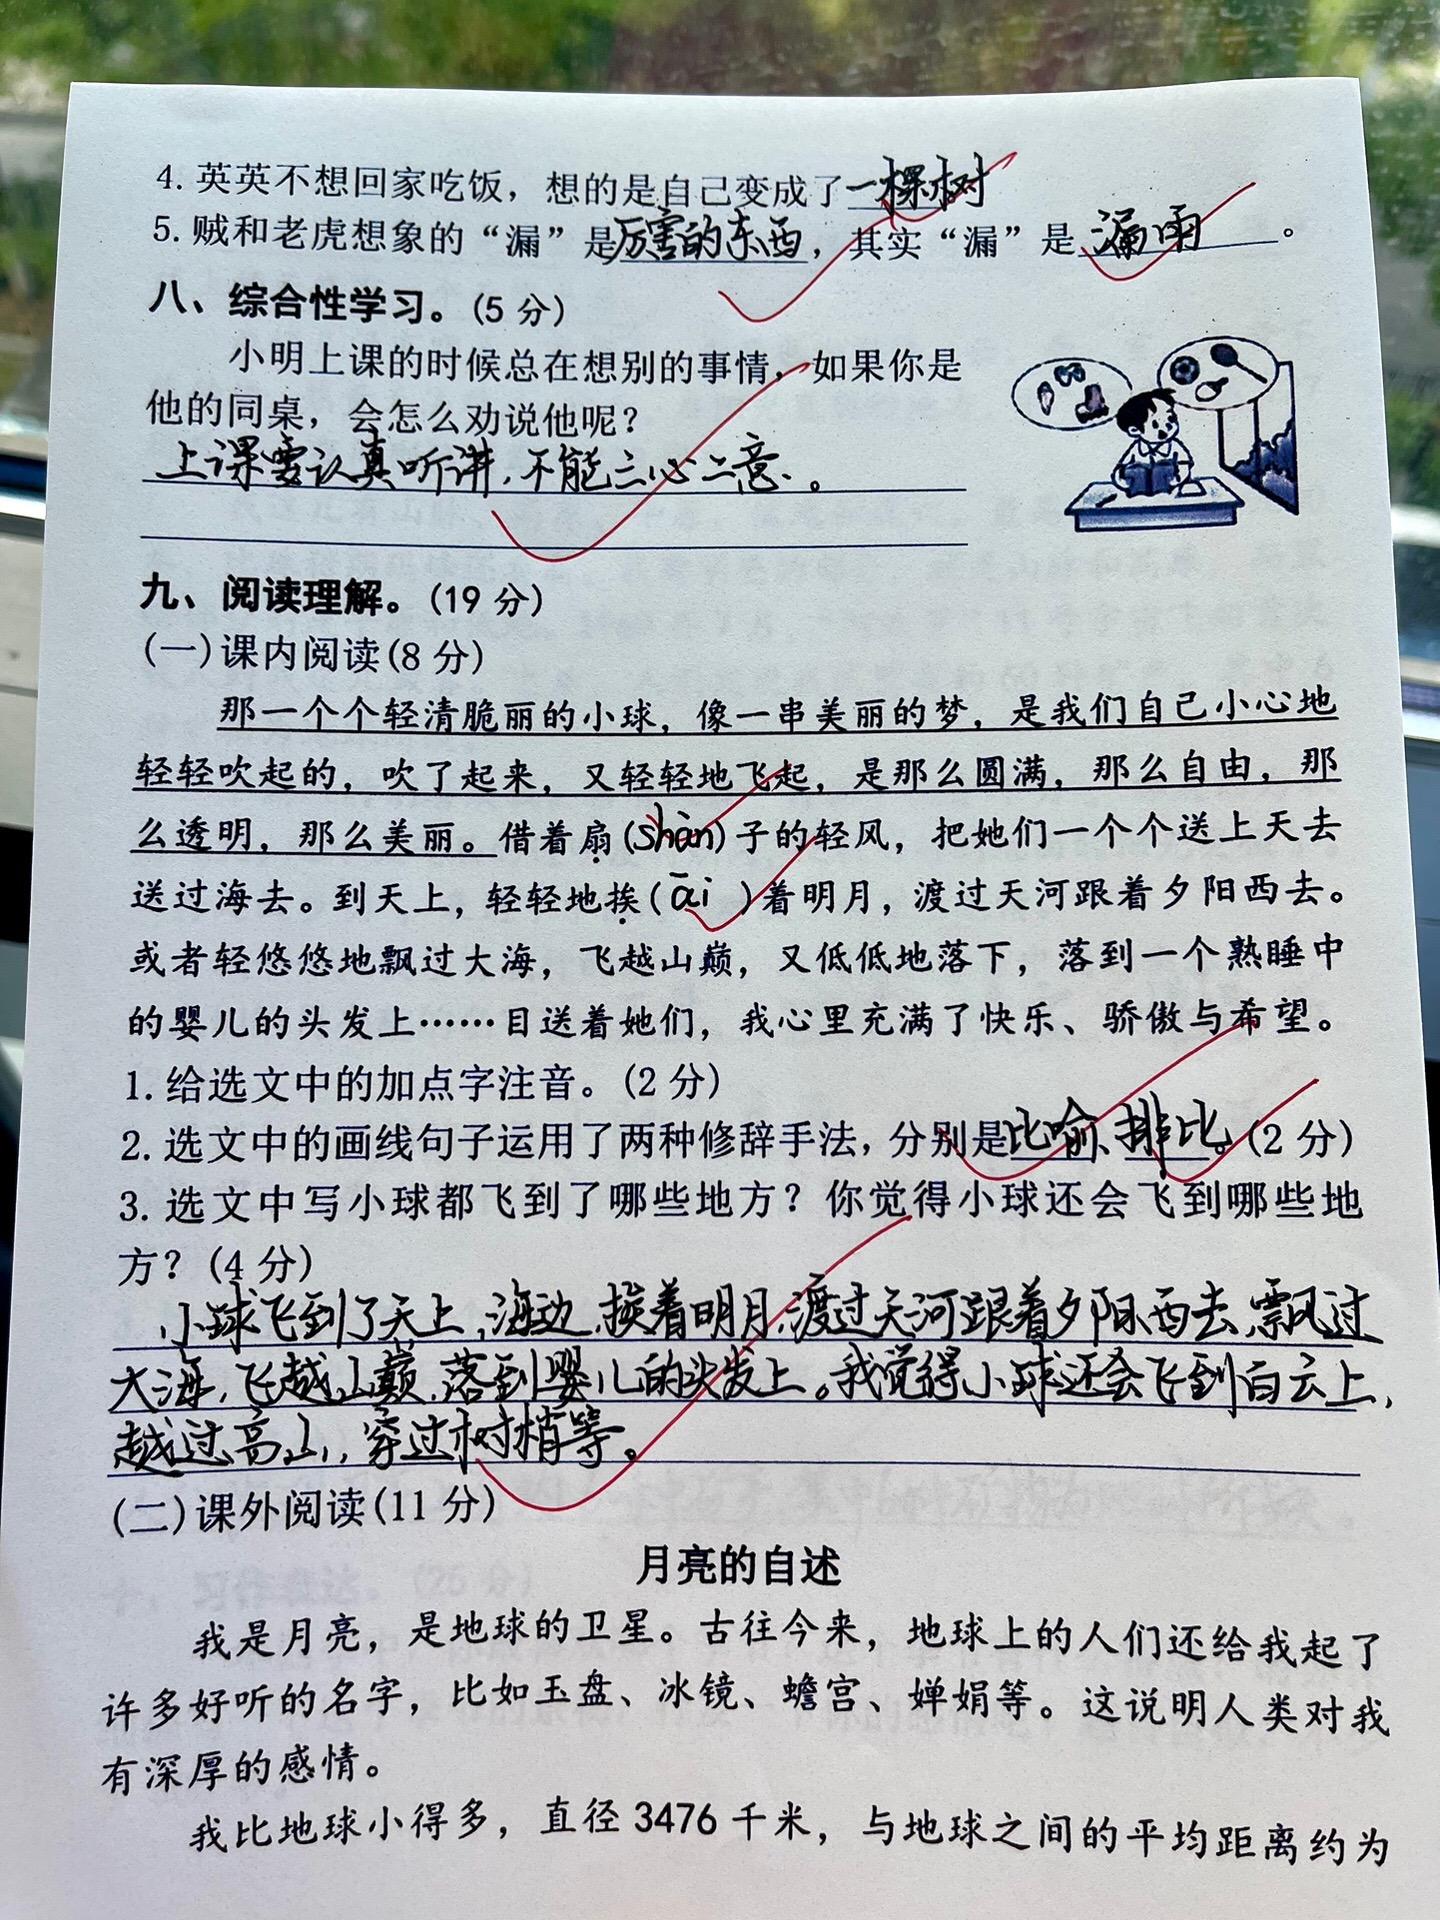 4. 英英不想回家吃饭，想的是自己变成了一棵树
5. 贼和老虎想象的“漏”是厉害的东西，其实“漏”是漏雨。
八、综合性学习。(5 分)
小明上课的时候总在想别的事情，如果你是
他的同桌，会怎么劝说他呢？
上课要认真听讲，不能三心二意。
九、阅读理解。(19 分)
(一)课内阅读(8 分)
那一个个轻清脆丽的小球，像一串美丽的梦，是我们自己小心地
轻轻吹起的，吹了起来，又轻轻地飞起，是那么圆满，那么自由，那
么透明，那么美丽。借着扇(shàn)子的轻风，把她们一个个送上天去
送过海去。到天上，轻轻地挨(āi)着明月，渡过天河跟着夕阳西去。
或者轻悠悠地飘过大海，飞越山巅，又低低地落下，落到一个熟睡中
的婴儿的头发上……目送着她们，我心里充满了快乐、骄傲与希望。
1. 给选文中的加点字注音。(2 分)
2. 选文中的画线句子运用了两种修辞手法，分别是比喻、排比。(2 分)
3. 选文中写小球都飞到了哪些地方？你觉得小球还会飞到哪些地
方？(4 分)
小球飞到了天上，海边，挨着明月，渡过天河跟着夕阳西去，飘过
大海，飞越山巅，落到婴儿的头发上。我觉得小球还会飞到白云上，
越过高山，穿过树梢等。
(二)课外阅读(11 分)
月亮的自述
我是月亮，是地球的卫星。古往今来，地球上的人们还给我起了
许多好听的名字，比如玉盘、冰镜、蟾宫、婵娟等。这说明人类对我
有深厚的感情。
我比地球小得多，直径 3476 千米，与地球之间的平均距离约为